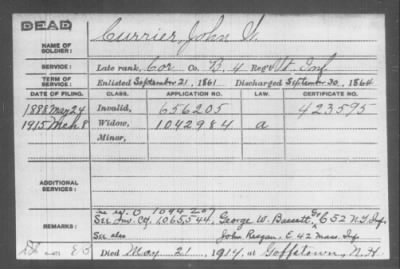 DEAD
NAME OF SOLDIER: Currier, John W.
SERVICE: Late rank, Cor Co. B, 4 Reg't Vt. Inf
TERM OF SERVICE: Enlisted September 21, 1861 Discharged September 30, 1864
DATE OF FILING. CLASS. APPLICATION NO. LAW. CERTIFICATE NO.
1888 May 24 Invalid, 656205 423595
1915 Mch 8 Widow, 1042984 a
Minor,
ADDITIONAL SERVICES:
See W. O 1044207
REMARKS: See Inv. 1,065,544, George W. Bassett, C 52 N.Y. Inf.
See also John Reagan, E. 42 Mass. Inf
Died May 21, 1914, at Goffstown, N.H.